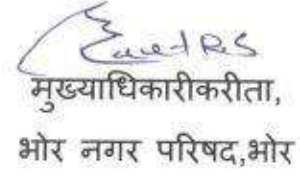 मुख्याधिकारीकरीता,
भोर नगर परिषद,भोर